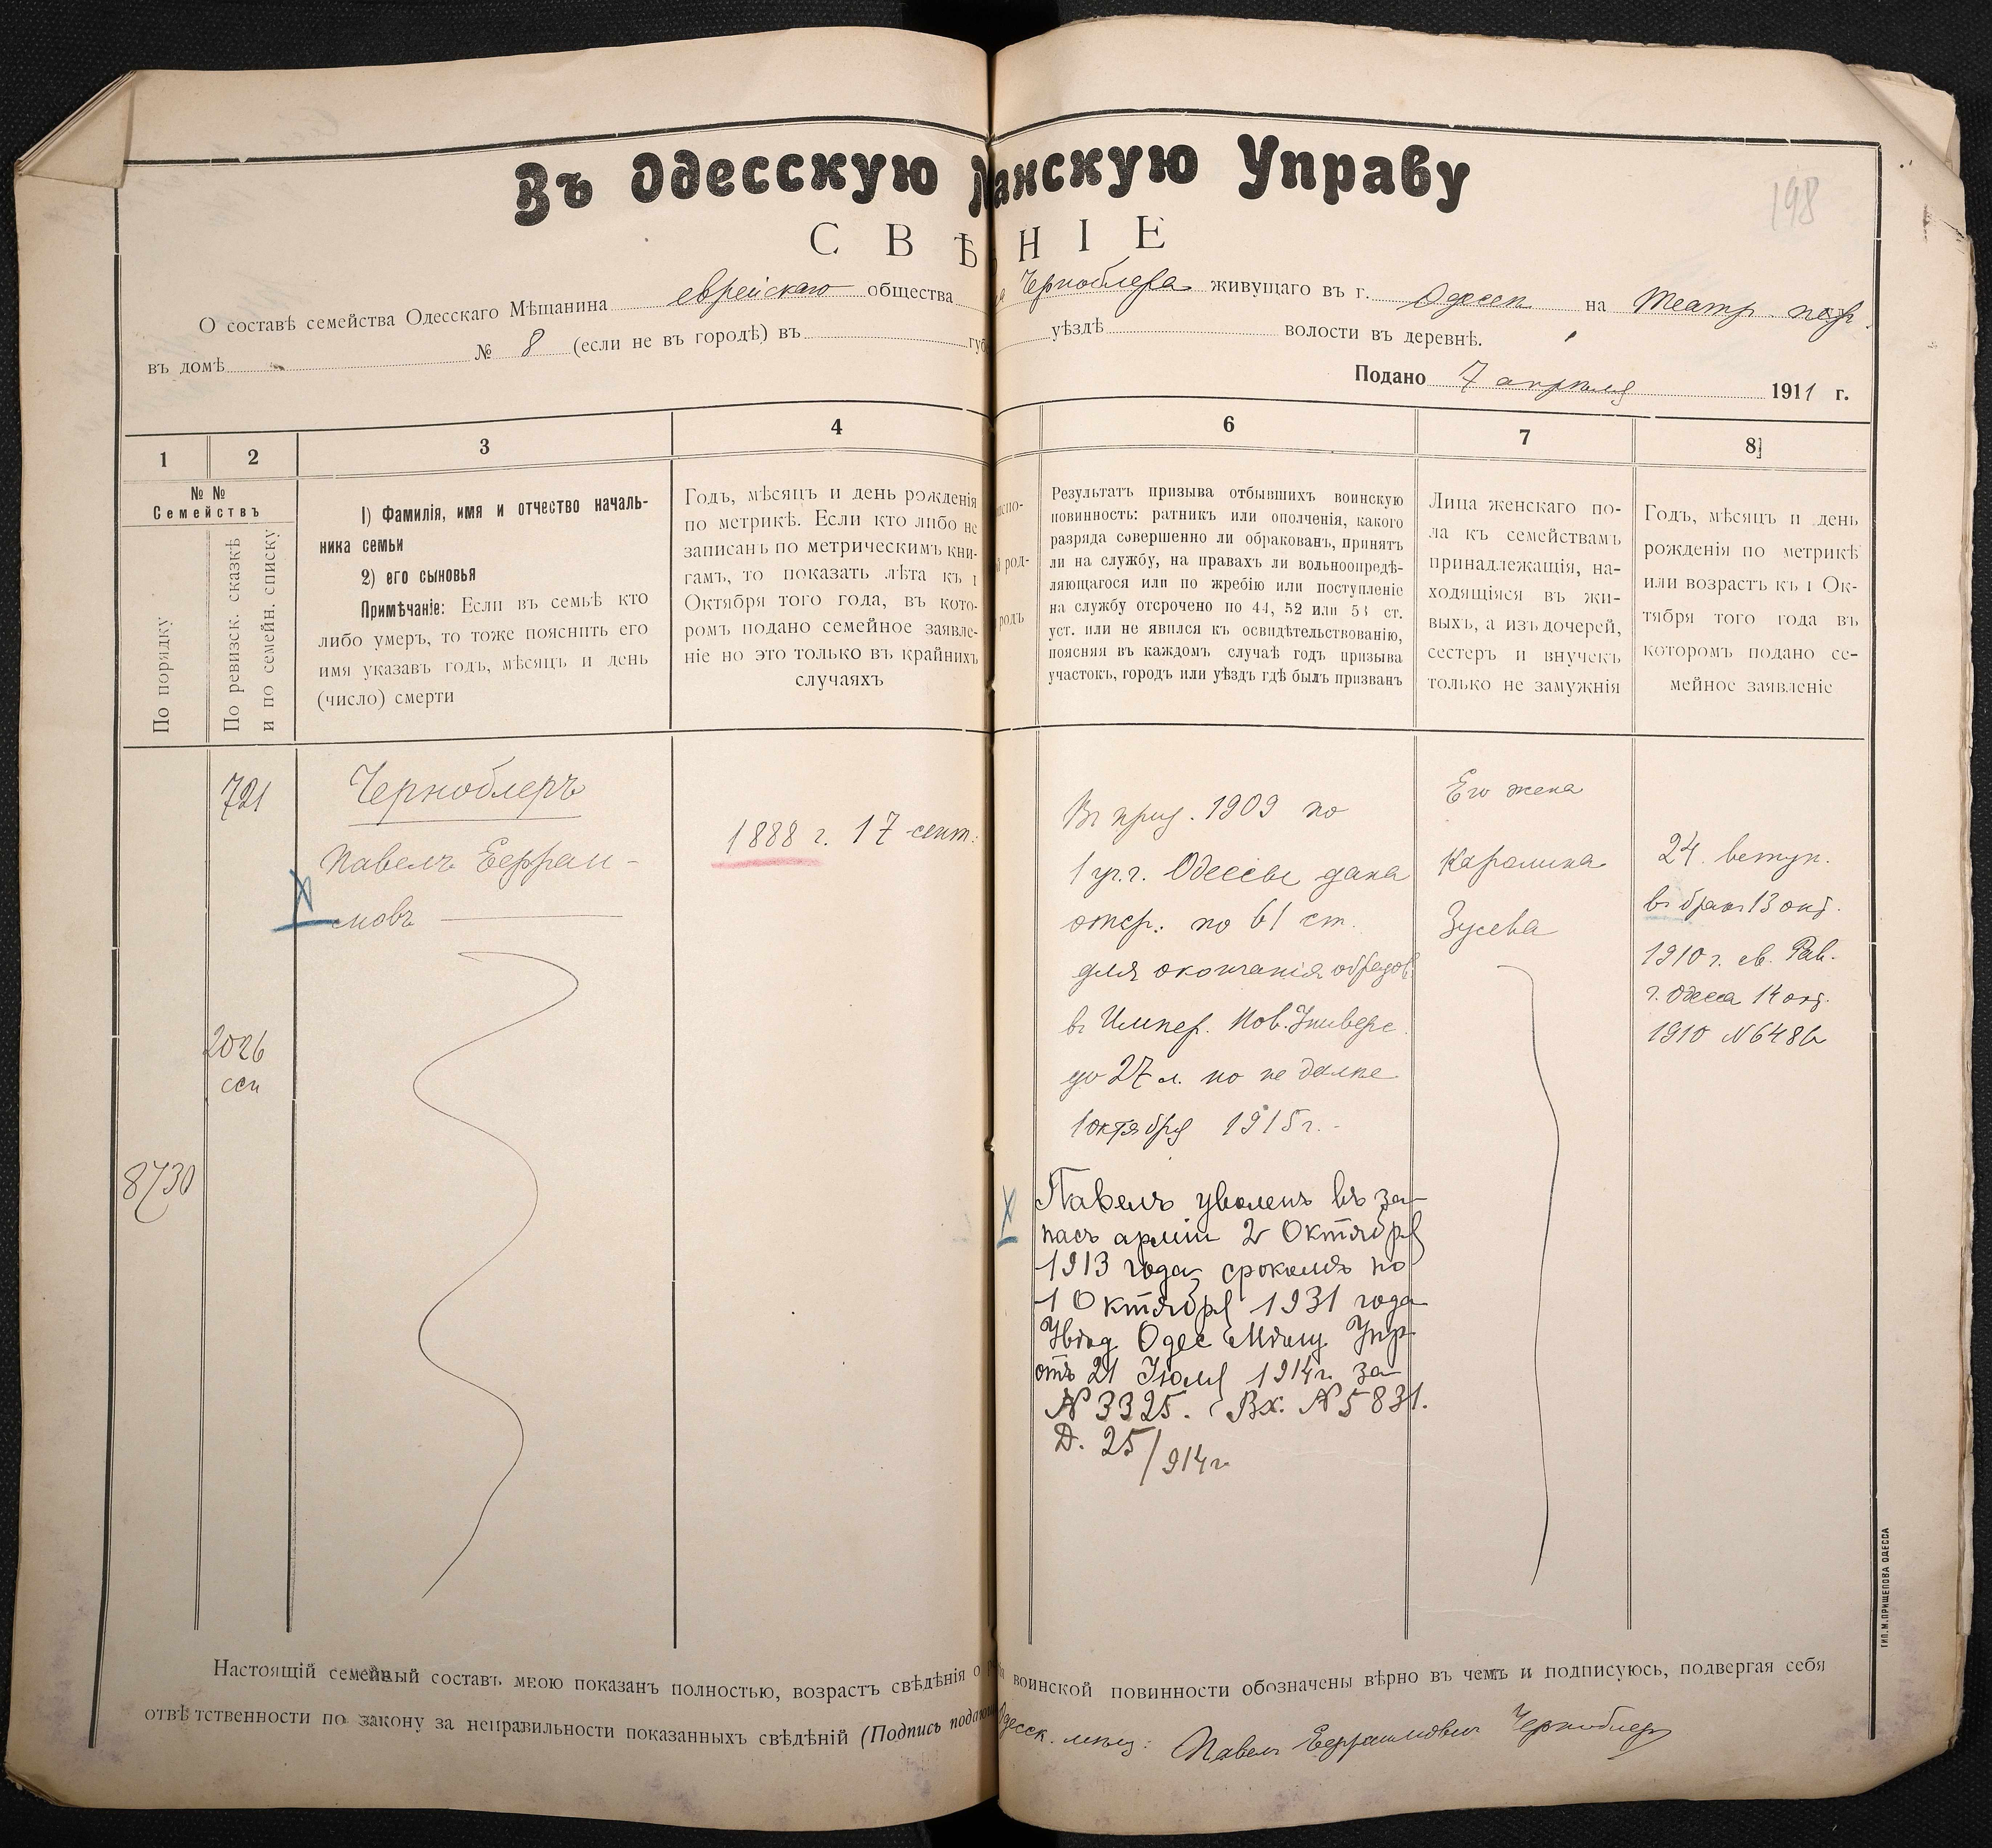 Въ Одесскую анскую Управу
198
СВѢ НІЕ
О составѣ семейства Одесскаго Мѣщанина еврейскаго общества Черноблера живущаго въ г. Одессѣ на Театр. пер.
въ домѣ № 8 (если не въ городѣ) въ губ уѣздѣ волости въ деревнѣ.
Подано 7 апрѣля 1911 г.
1
2
3
4
6
7
8
№ №
Семействъ
По порядку
По ревизск. сказкѣ
и по семейн. списку
1) Фамилія, имя и отчество началь-
ника семьи
2) его сыновья
Примѣчаніе: Если въ семьѣ кто
либо умеръ, то тоже пояснить его
имя указавъ годъ, мѣсяцъ и день
(число) смерти
Годъ, мѣсяцъ и день рожденія
по метрикѣ. Если кто либо не
записанъ по метрическимъ кни-
гамъ, то показать лѣта къ 1
Октября того года, въ кото-
ромъ подано семейное заявле-
ніе но это только въ крайнихъ
случаяхъ
Результатъ призыва отбывшихъ воинскую
повинность: ратникъ или ополченія, какого
разряда совершенно ли обракованъ, принятъ
ли на службу, на правахъ ли вольноопредѣ-
ляющагося или по жребію или поступленіе
на службу отсрочено по 44, 52 или 53 ст.
уст. или не явился къ освидѣтельствованію,
поясняя въ каждомъ случаѣ годъ призыва
участокъ, городъ или уѣздъ гдѣ былъ призванъ
Лица женскаго по-
ла къ семействамъ
принадлежащія, на-
ходящіяся въ жи-
выхъ, а изъ дочерей,
сестеръ и внучекъ
только не замужнія
Годъ, мѣсяцъ и день
рожденія по метрикѣ
или возрастъ къ 1 Ок-
тября того года въ
которомъ подано се-
мейное заявленіе
721
2026
ссп
8730
Черноблеръ
Павелъ Ефраи-
мовъ
1888 г. 17 сент.
Въ приз. 1909 по
1 уч. г. Одессы дана
отср. по 61 ст.
для окончанія образов.
въ Импер. Нов. Универс.
до 27 л. но не далѣе
1 октября 1915 г.
Павелъ уволенъ въ за-
пасъ арміи 2 Октября
1913 года срокомъ по
1 Октября 1931 года
Увѣд Одес Мѣщ Упр
отъ 21 Іюля 1914 г. за
№ 3325. Вх. № 5831.
Д. 25/914 г.
Его жена
Каролина
Зусева
24. вступ.
въ бракъ 13 окт.
1910 г. св. Рав.
г. Одесса 14 окт.
1910 № 6486
Настоящій семейный составъ мною показанъ полностью, возрастъ свѣдѣнія о воинской повинности обозначены вѣрно въ чемъ и подписуюсь, подвергая себя
отвѣтственности по закону за неправильности показанныхъ свѣдѣній (Подпись Одесск. мѣщ: Павелъ Ефраимовичъ Черноблеръ
ТИП. М. ПРИЩЕПОВА ОДЕССА